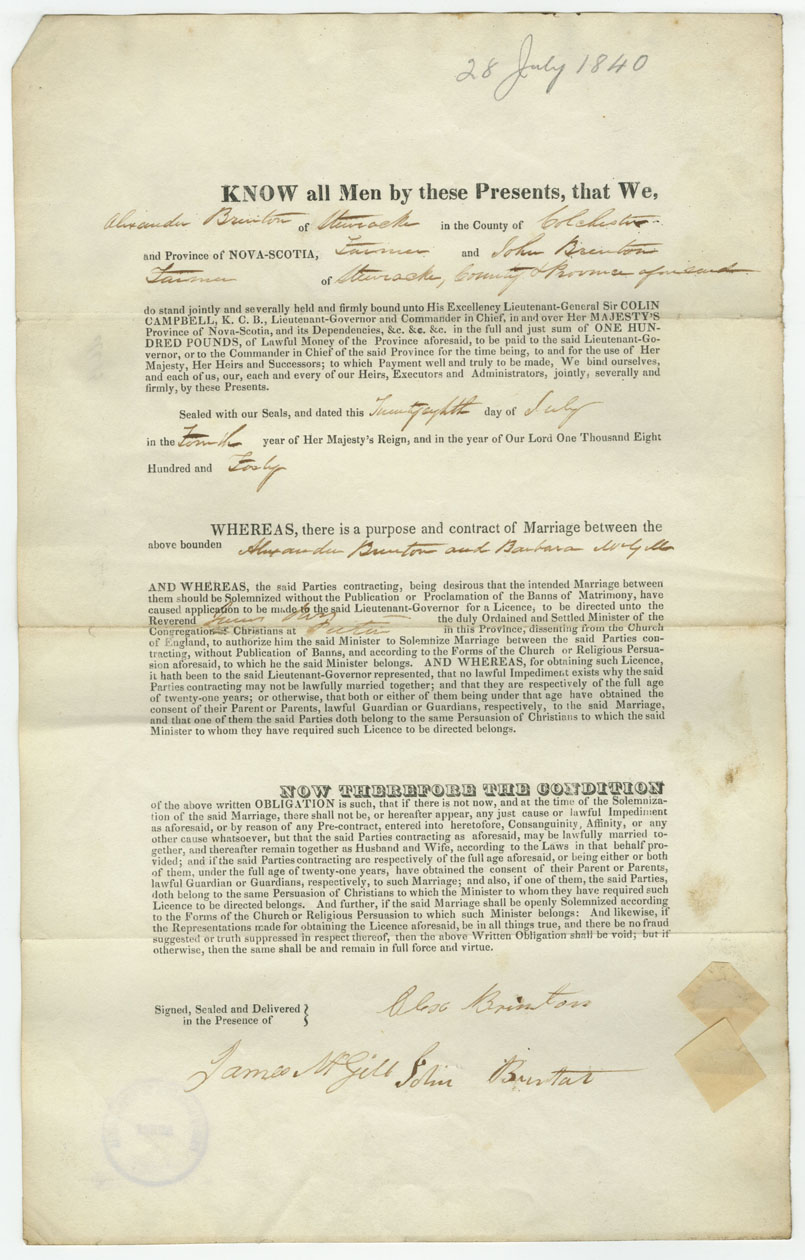 28 July 1840
KNOW all Men by these Presents, that We,
Alexander Brenton of Stewiacke in the County of Colchester
and Province of NOVA-SCOTIA, Farmer and John Brenton
Farmer of Stewiacke, County & Province aforesaid
do stand jointly and severally held and firmly bound unto His Excellency Lieutenant-General Sir COLIN
CAMPBELL, K. C. B., Lieutenant-Governor and Commander in Chief, in and over Her MAJESTY'S
Province of Nova-Scotia, and its Dependencies, &c. &c. &c. in the full and just sum of ONE HUN-
DRED POUNDS, of Lawful Money of the Province aforesaid, to be paid to the said Lieutenant-Go-
vernor, or to the Commander in Chief of the said Province for the time being, to and for the use of Her
Majesty, Her Heirs and Successors; to which Payment well and truly to be made, We bind ourselves,
and each of us, our, each and every of our Heirs, Executors and Administrators, jointly, severally and
firmly, by these Presents.
Sealed with our Seals, and dated this Twentyeighth day of July
in the Fourth year of Her Majesty's Reign, and in the year of Our Lord One Thousand Eight
Hundred and Forty
WHEREAS, there is a purpose and contract of Marriage between the
above bounden Alexander Brenton and Barbara McGill
AND WHEREAS, the said Parties contracting, being desirous that the intended Marriage between
them should be Solemnized without the Publication or Proclamation of the Banns of Matrimony, have
caused application to be made to the said Lieutenant-Governor for a Licence, to be directed unto the
Reverend James Ross the duly Ordained and Settled Minister of the
Congregation Christians at in this Province, dissenting from the Church
of England, to authorize him the said Minister to Solemnize Marriage between the said Parties con-
tracting, without Publication of Banns, and according to the Forms of the Church or Religious Persua-
sion aforesaid, to which he the said Minister belongs. AND WHEREAS, for obtaining such Licence,
it hath been to the said Lieutenant-Governor represented, that no lawful Impediment exists why the said
Parties contracting may not be lawfully married together; and that they are respectively of the full age
of twenty-one years; or otherwise, that both or either of them being under that age have obtained the
consent of their Parent or Parents, lawful Guardian or Guardians, respectively, to the said Marriage,
and that one of them the said Parties doth belong to the same Persuasion of Christians to which the said
Minister to whom they have required such Licence to be directed belongs.
NOW THEREFORE THE CONDITION
of the above written OBLIGATION is such, that if there is not now, and at the time of the Solemniza-
tion of the said Marriage, there shall not be, or hereafter appear, any just cause or lawful Impediment
as aforesaid, or by reason of any Pre-contract, entered into heretofore, Consanguinity, Affinity, or any
other cause whatsoever, but that the said Parties contracting as aforesaid, may be lawfully married to-
gether, and thereafter remain together as Husband and Wife, according to the Laws in that behalf pro-
vided; and if the said Parties contracting are respectively of the full age aforesaid, or being either or both
of them, under the full age of twenty-one years, have obtained the consent of their Parent or Parents,
lawful Guardian or Guardians, respectively, to such Marriage; and also, if one of them, the said Parties,
doth belong to the same Persuasion of Christians to which the Minister to whom they have required such
Licence to be directed belongs. And further, if the said Marriage shall be openly Solemnized according
to the Forms of the Church or Religious Persuasion to which such Minister belongs: And likewise, if
the Representations made for obtaining the Licence aforesaid, be in all things true, and there be no fraud
suggested or truth suppressed in respect thereof, then the above Written Obligation shall be void; but if
otherwise, then the same shall be and remain in full force and virtue.
Signed, Sealed and Delivered
in the Presence of
Alexr Brinton
James McGill John Brinton